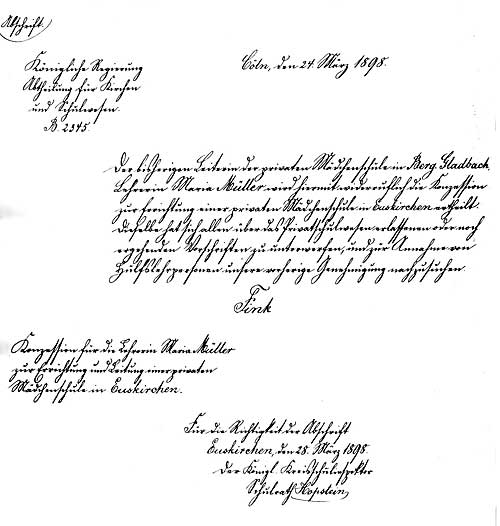 Abschrift.
Cöln, den 24. März 1898.
Königliche Regierung
Abtheilung für Kirchen
und Schulwesen.
B. 2345.
Der bisherigen Leiterin der privaten Mädchenschule in Berg. Gladbach,
Lehrerin Maria Müller, wird hiermit widerruflich die Konzession
zur Errichtung einer privaten Mädchenschule in Euskirchen ertheilt.
Dieselbe hat sich allen über das Privatschulwesen erlassenen oder noch
ergehenden Vorschriften zu unterwerfen, und zur Annahme von
Hülfslehrpersonen unsere vorherige Genehmigung nachzusuchen.
Fink
Konzession für die Lehrerin Maria Müller
zur Errichtung und Leitung einer privaten
Mädchenschule in Euskirchen.
Für die Richtigkeit der Abschrift
Euskirchen, den 28. März 1898.
Der Königl. Kreisschulinspektor
Schulrath Hopstein